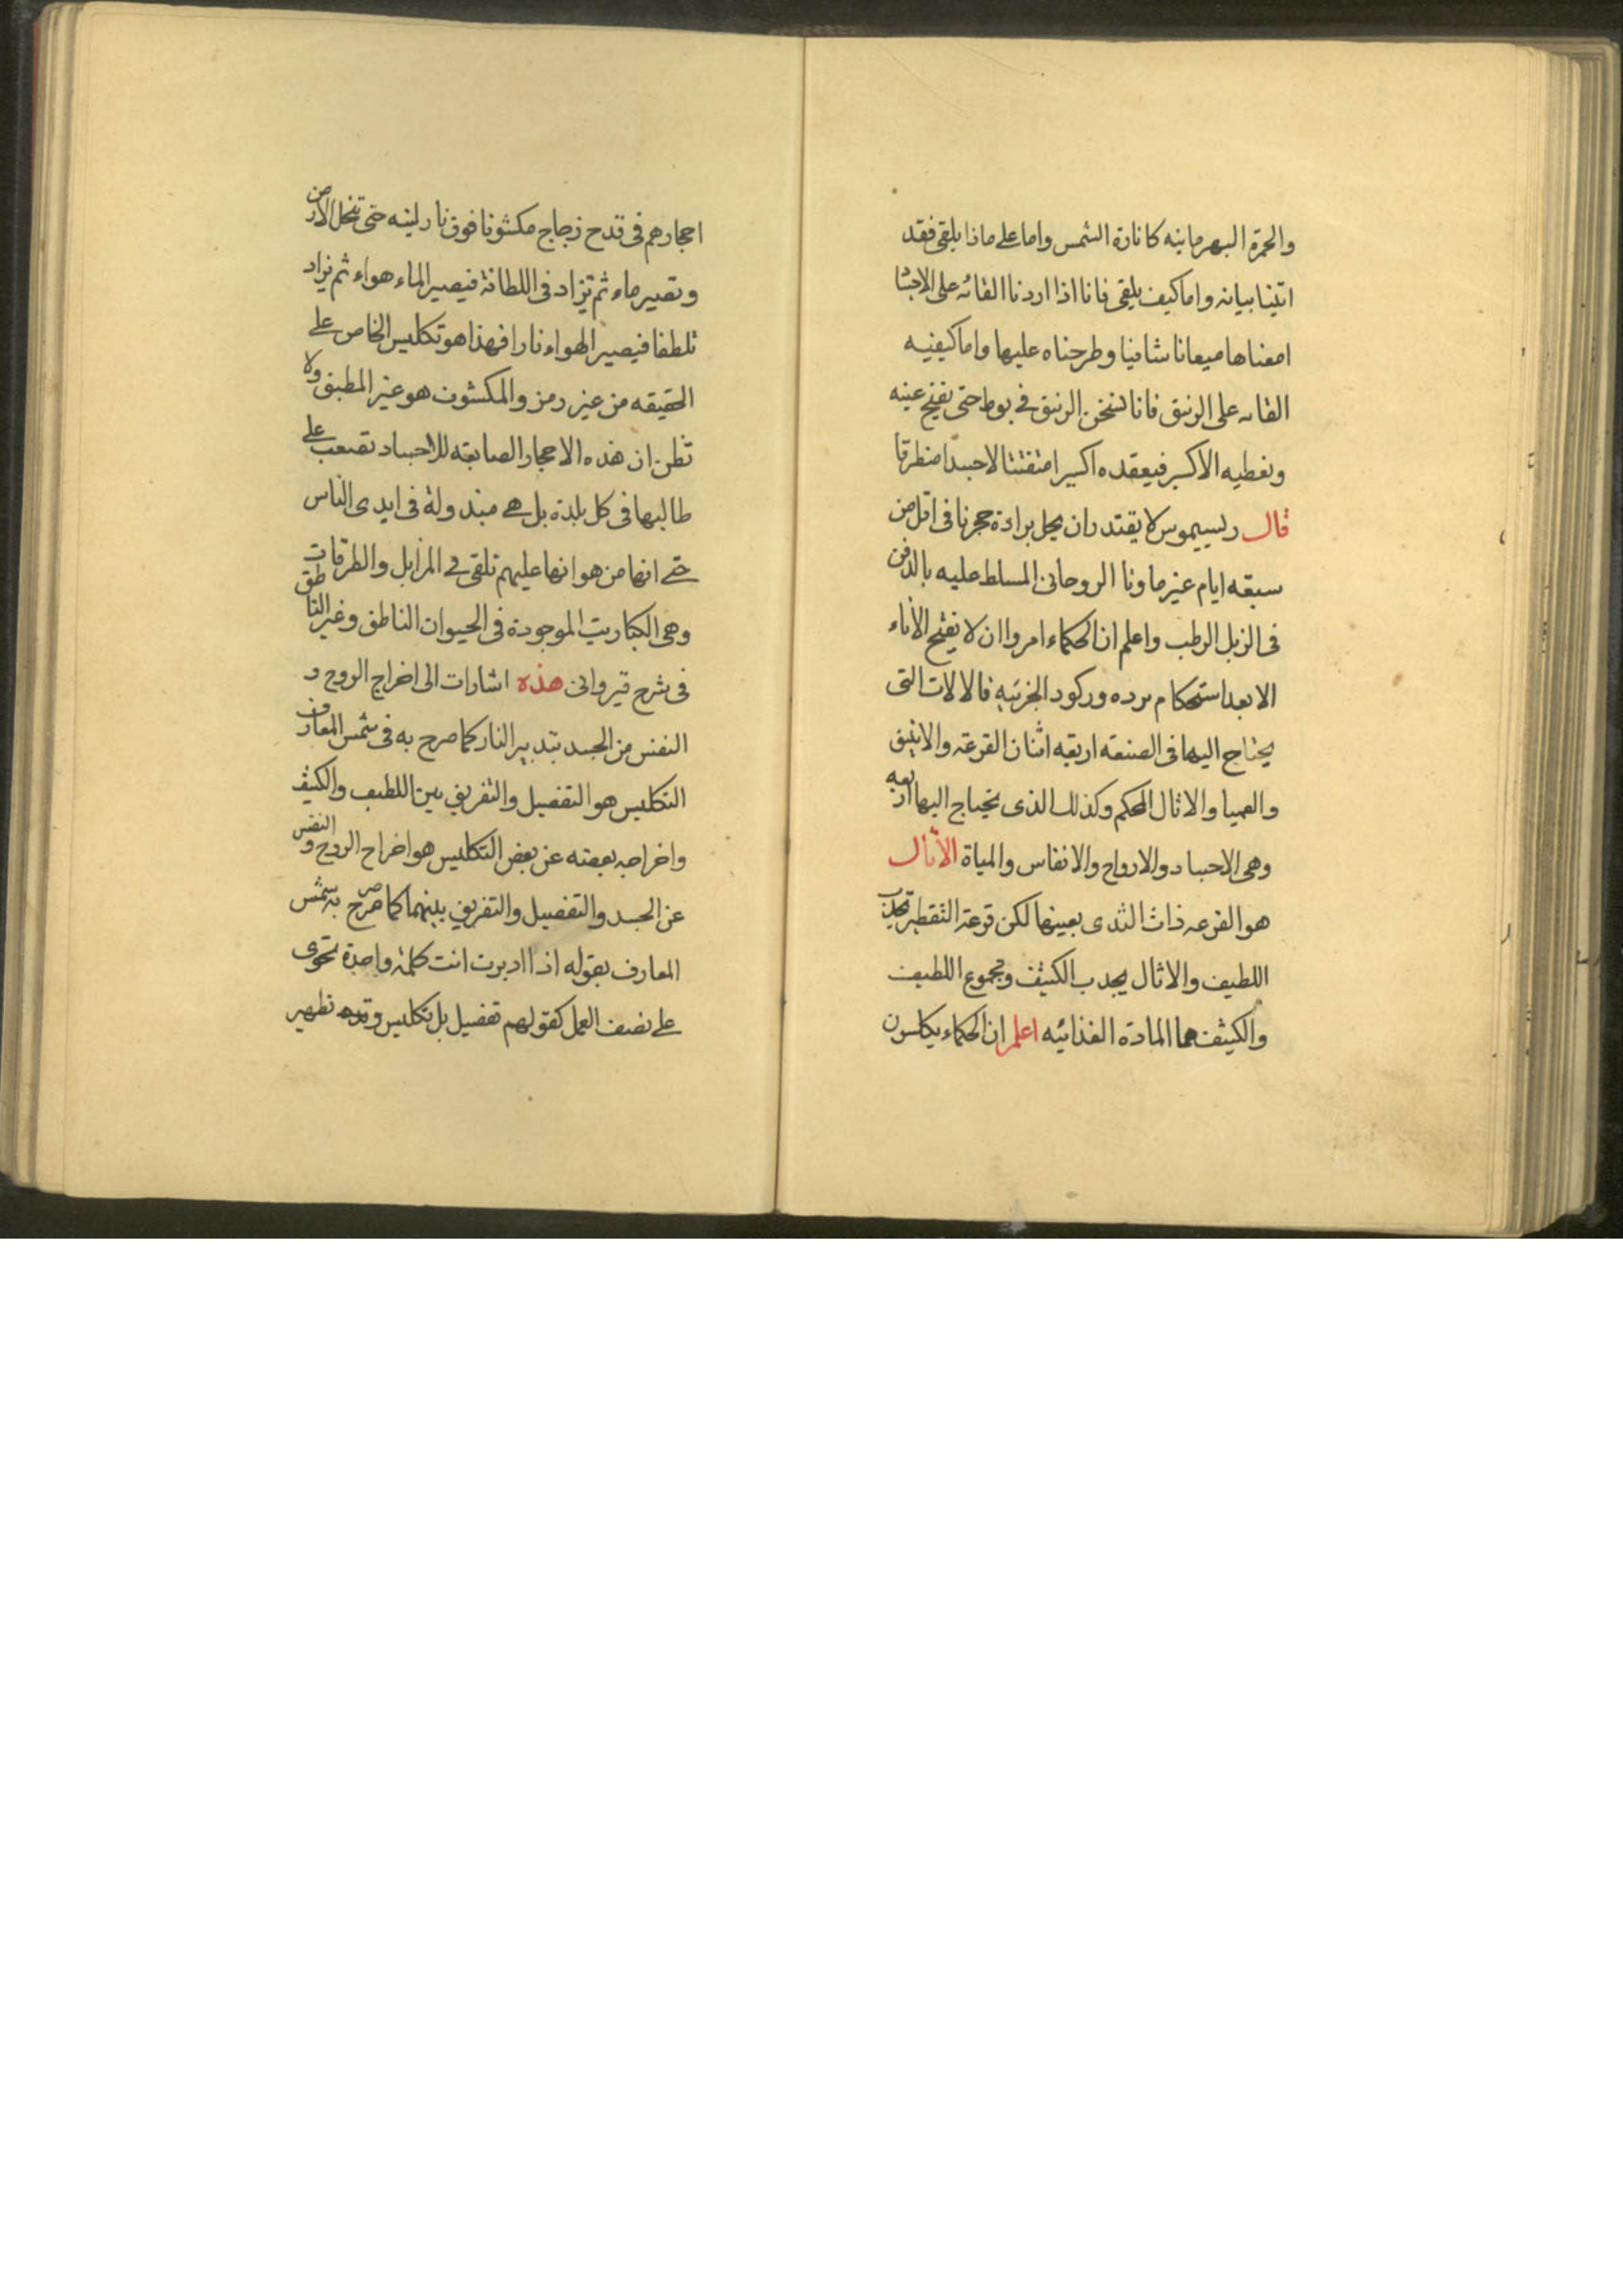 والحمرة البهرمانيه كانارة الشمس واما على ماذا يلقى فقد
اتينا بيانه واما كيف يلقى فانا اذا اردنا القائه على الاجسا
امعناها ميعانا شافيا وطرحناه عليها واما كيفيه
القائه على الزيبق فانا نسخن الزيبق في بوط حتى يفتح عينه
ونعطيه الاكسير فيعقده اكسيرا متفتتا لا جسدا منطرقا
قال ريسيموس لا يقتدر ان يحل برادة حجرنا في اقل من
سبعه ايام غير ماونا الروحانى المسلط عليه بالدفن
فى الزبل الرطب واعلم ان الحكماء امروا ان لا يفتح الاناء
الا بعد استحكام برده وركود الجزئيه فالالات التى
يحتاج اليها فى الصنعه اربعه اثنان القرعه والانبيق
والعميا والاثال المحكم وكذلك الذى يحتاج اليها اربعه
وهى الاجساد والارواح والانفاس والمياة الاثال
هو القرعه ذات الثدى بعينها لكن قرعة التقطير تجذب
اللطيف والاثال يجذب الكثيف ومجموع اللطيف
والكثيف هما المادة الغذائيه اعلم ان الحكماء يكلسون
احجارهم فى قدح زجاج مكشوفا فوق نار لينه حتى تنحل الارض
وتصير ماء ثم تزاد فى اللطافة فيصير الماء هواء ثم يزاد
تلطفا فيصير الهواء نارا فهذا هو تكليس الخاص على
الحقيقه من غير رمز والمكشوف هو غير المطبق ولا
تظن ان هذه الاحجار الصابغه للاجساد تصعب على
طالبها فى كل بلدة بل هى مبتدولة فى ايدى الناس
حتى انها من هوانها عليهم تلقى فى المزابل والطرقات
وهى الكباريت الموجودة فى الحيوان الناطق وغير الناطق
فى شرح قيروانى هذه اشارات الى اخراج الروح و
النفس من الجسد بتدبير النار كما صرح به فى شمس المعارف
التكليس هو التفصيل والتفريق بين اللطيف والكثيف
واخراجه بعضه عن بعض التكليس هو اخراج الروح والنفس
عن الجسد والتفصيل والتفريق بينهما كما صرح به شمس
المعارف بقوله اذا دبرت انت كلمة واحدة تحوى
على نصف العمل كقولهم تفصيل بل تكليس و تطهير